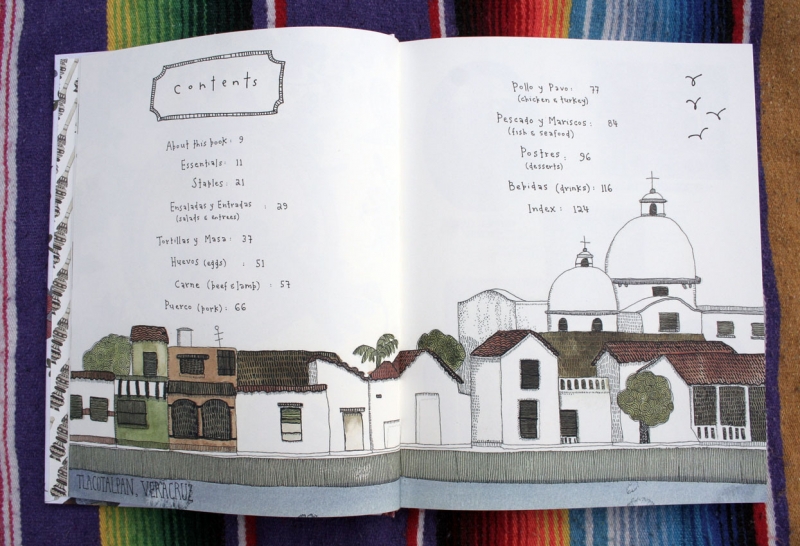 contents
About this book: 9
Essentials: 11
Staples: 21
Ensaladas y Entradas : 29
(salads & entrees)
Tortillas y Masa: 37
Huevos (eggs) : 51
Carne (beef & lamb) : 57
Puerco (pork): 66
Pollo y Pavo: 77
(chicken & turkey)
Pescado y Mariscos: 84
(fish & seafood)
Postres: 96
(desserts)
Bebidas (drinks): 116
Index: 124
TLACOTALPAN, VERACRUZ